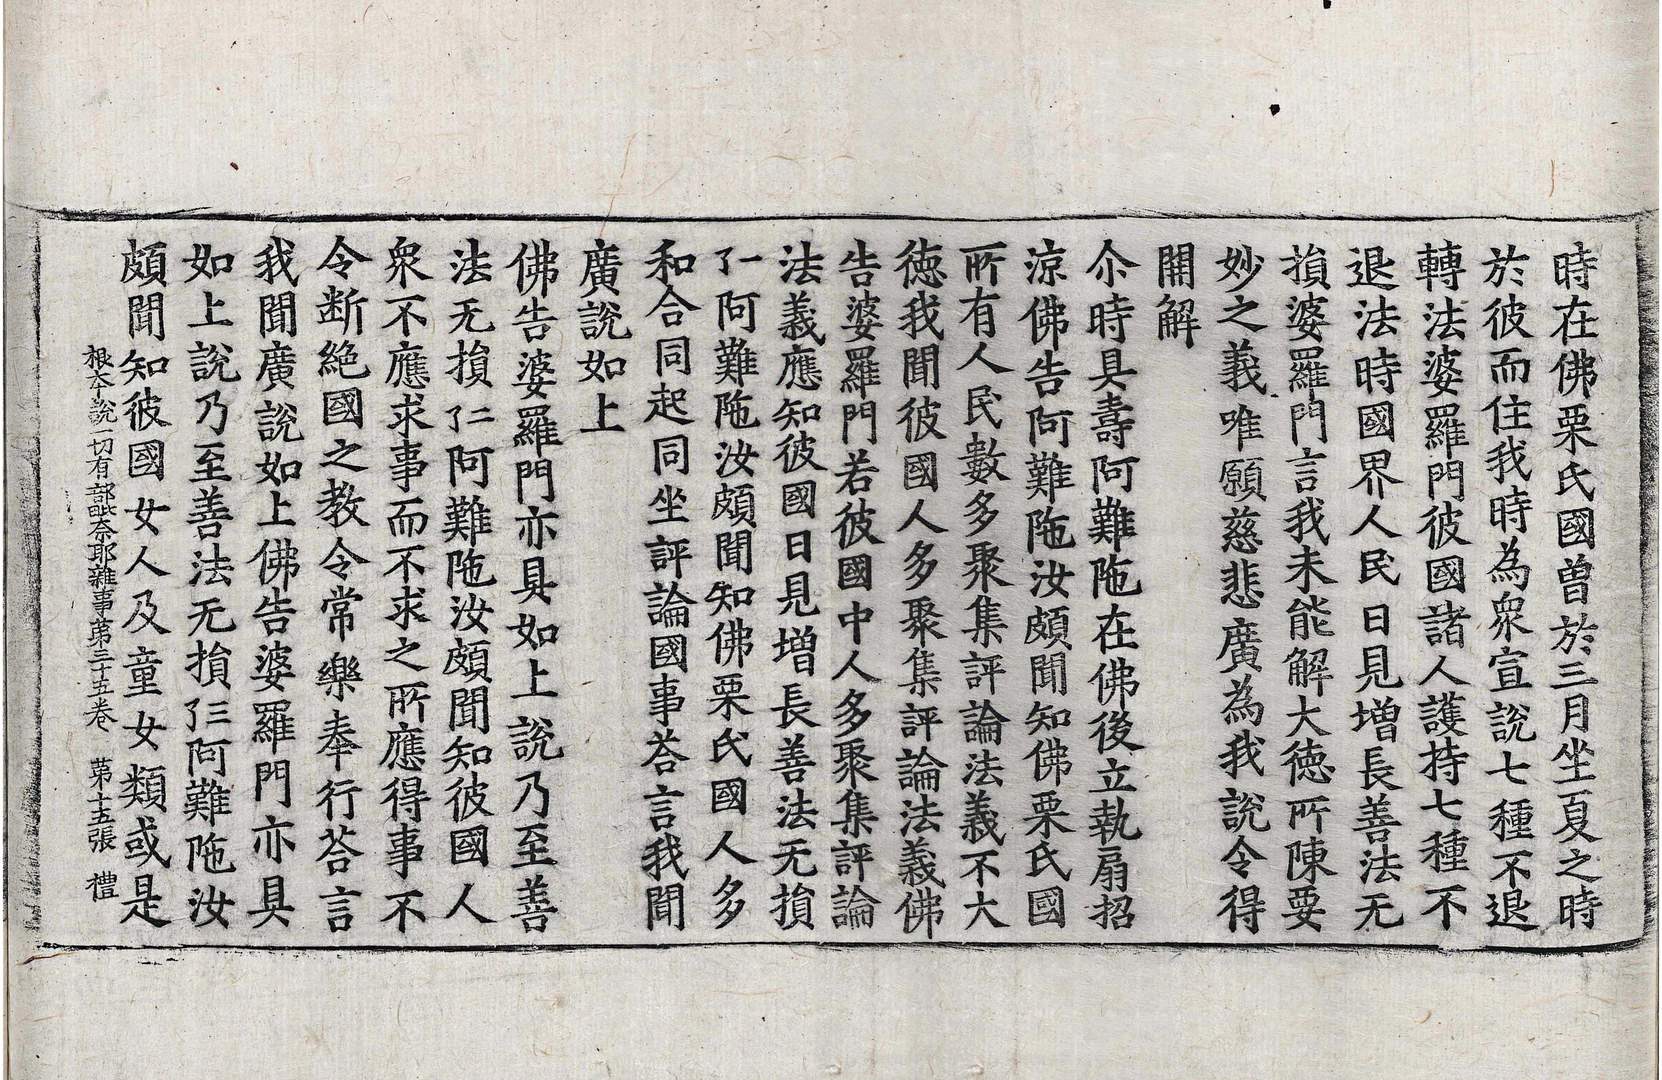 時在佛栗氏國曾於三月坐夏之時
於彼而住我時為衆宣說七種不退
轉法婆羅門彼國諸人護持七種不
退法時國界人民日見增長善法无
損婆羅門言我未能解大徳所陳要
妙之義唯願慈悲廣為我說令得
開解
尒時具壽阿難陁在佛後立執扇招
涼佛告阿難陁汝頗聞知佛栗氏國
所有人民數多聚集評論法義不大
徳我聞彼國人多聚集評論法義佛
告婆羅門若彼國中人多聚集評論
法義應知彼國日見增長善法无損
了一阿難陁汝頗聞知佛栗氏國人多
和合同起同坐評論國事荅言我聞
廣說如上
佛告婆羅門亦具如上說乃至善
法无損了二阿難陁汝頗聞知彼國人
衆不應求事而不求之所應得事不
令断絕國之教令常樂奉行荅言
我聞廣說如上佛告婆羅門亦具
如上說乃至善法无損了三阿難陁汝
頗聞知彼國女人及童女類或是
根夲說一切有部毗奈耶雜事苐三十五卷 苐十五張 禮